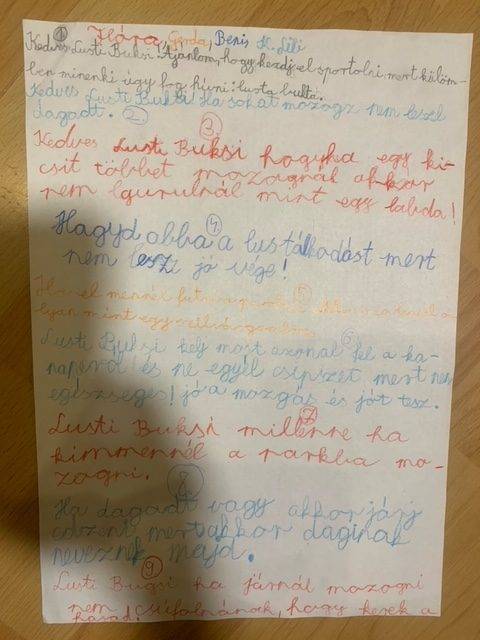 Klára, Gerda, Benis K. Lili
① Kedves Lusti Buksi! Ajánlom, hogy kezdj el sportolni mert külöm-
ben minenki úgy fog hívni: lusta buksi.
Kedves Lusti Buksi! Ha sokat mozogsz nem leszel
dagadt. 2.
3.
Kedves Lusti Buksi hogyha egy ki-
csit többet mozognál akkor
nem lgurulnál mint egy labda!
4.
Hagyd abba a lustálkodást mert
nem lesz jó vége!
5.
Ha el mennél futni a
lyan mint egy
6
Lusti Buksi kelj most azonal fel a ka-
napéról és ne egyél csipszet mert nem
egészséges! jó a mozgás és jót tesz.
7
Lusti Buksi mi lenne ha
kimmennél a parkba mo-
zogni.
8
Ha dagadt vagy akkor járj
edzeni mert akkor daginak
neveznek majd.
9
Lusti Bugsi ha járnál mozogni
nem csúfolnának, hogy kerek a
hasad!